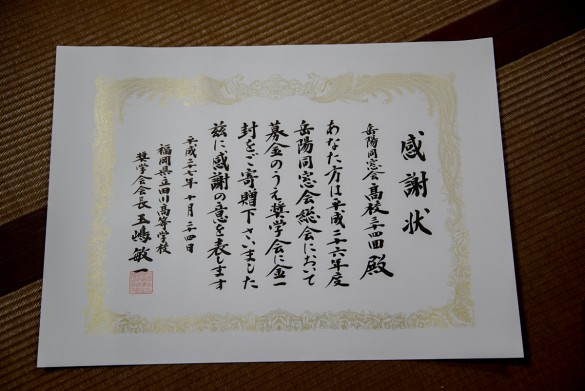 感謝状
岳陽同窓会高校三四回殿
あなた方は平成二十六年度
岳陽同窓会総会において
募金のうえ奨学会に金一
封をご寄贈下さいました
茲に感謝の意を表します
平成二七年十月二四日
福岡県立田川高等学校
奨学会会長玉嶋敏一